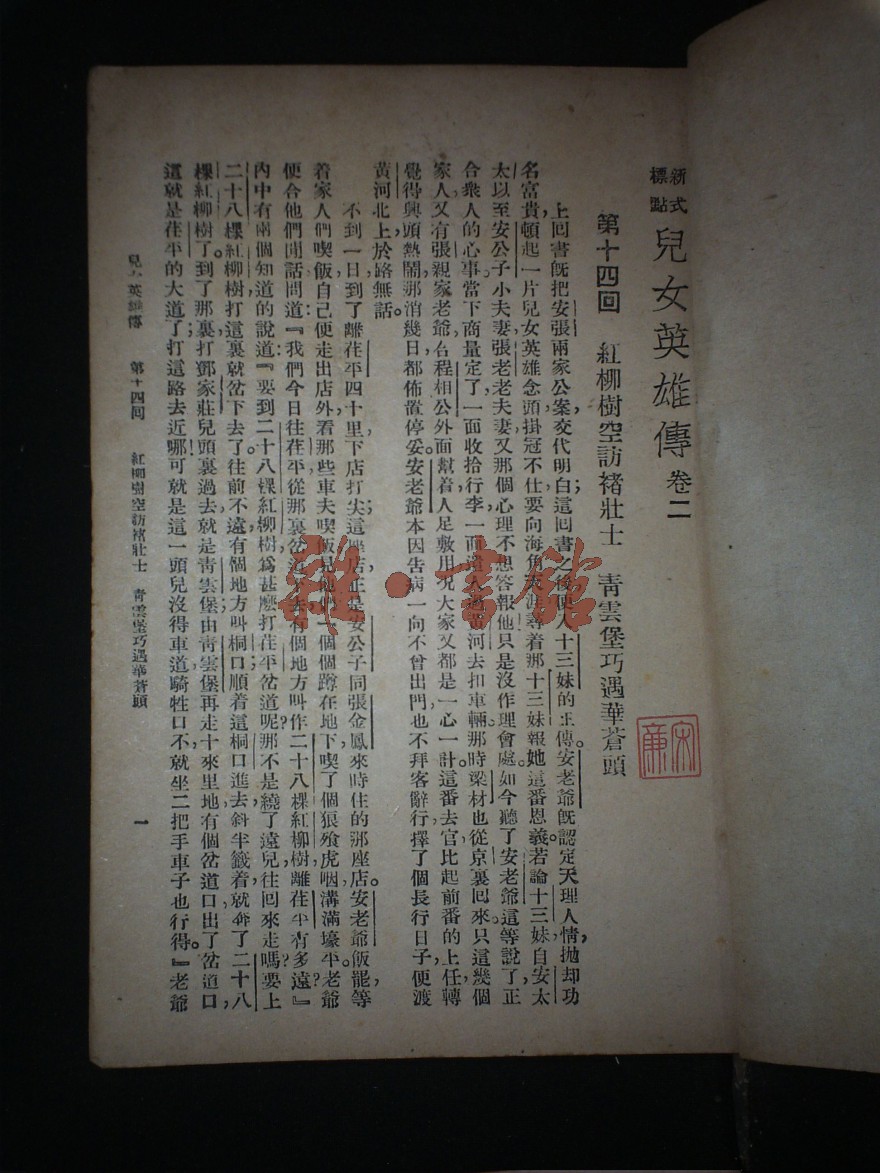 新式
標點
兒女英雄傳 卷二
第十四回 紅柳樹空訪褚壯士 青雲堡巧遇華蒼頭
上回書既把安張兩家公案交代明白這回書之後便入十三妹的正傳。安老爺既認定天理人情，拋却功
名富貴頓起一片兒女英雄念頭掛冠不仕要向海角天涯尋着那十三妹報她這番恩義。若論十三妹自安太
太以至安公子小夫妻張老老夫妻又那個心理不想答報他只是沒作理會處如今聽了安老爺這等說了正
合衆人的心事當下商量定了一面收拾行李一面遣人過黃河去扣車輛。那時梁材也從京裏回來。只這幾個
家人又有張親家老爺合程相公外面幫着人足敷用況大家又都是一心一計。這番去官比起前番的上任轉
覺得興頭熱鬧那消幾日都佈置停妥。安老爺本因告病一向不曾出門，也不拜客辭行擇了個長行日子，便渡
黃河北上於路無話。
不到一日，到了離茌平四十里，下店打尖；這座店正是安公子同張金鳳來時住的那座店。安老爺飯罷，等
着家人們喫飯自己便走出店外，看那些車夫喫飯見他們一個個蹲在地下，喫了個狠飱虎咽，溝滿壕平。老爺
便合他們閒話問道：『我們今日往茌平從那裏岔道下去有個地方叫作二十八棵紅柳樹，離茌平有多遠？』
內中有兩個知道的說道：『要到二十八棵紅柳樹爲甚麽打茌平岔道呢？那不是繞了遠兒往回來走嗎？要上
二十八棵紅柳樹打這裏就岔下去了。往前不遠有個地方叫桐口；順着這桐口進去，斜半籤着就奔了二十八
棵紅柳樹了。到了那裏打鄧家莊兒頭裏過去就是青雲堡由青雲堡再走十來里地，有個岔道口，出了岔道口，
這就是茌平的大道了；打這路去近哪！可就是這一頭兒沒得車道，騎牲口不，就坐二把手車子也行得。』老爺
兒女英雄傳 第十四回 紅柳樹空訪褚壯士 青雲堡巧遇華蒼頭 一
雜·書館